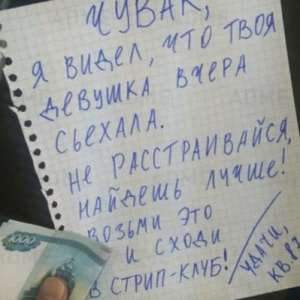 ЧУВАК,
Я ВИДЕЛ, ЧТО ТВОЯ
ДЕВУШКА ВЧЕРА
СЪЕХАЛА.
НЕ РАССТРАИВАЙСЯ,
НАЙДЕШЬ ЛУЧШЕ!
ВОЗЬМИ ЭТО
И СХОДИ
В СТРИП-КЛУБ!
УДАЧИ,
КВ. 87
1000